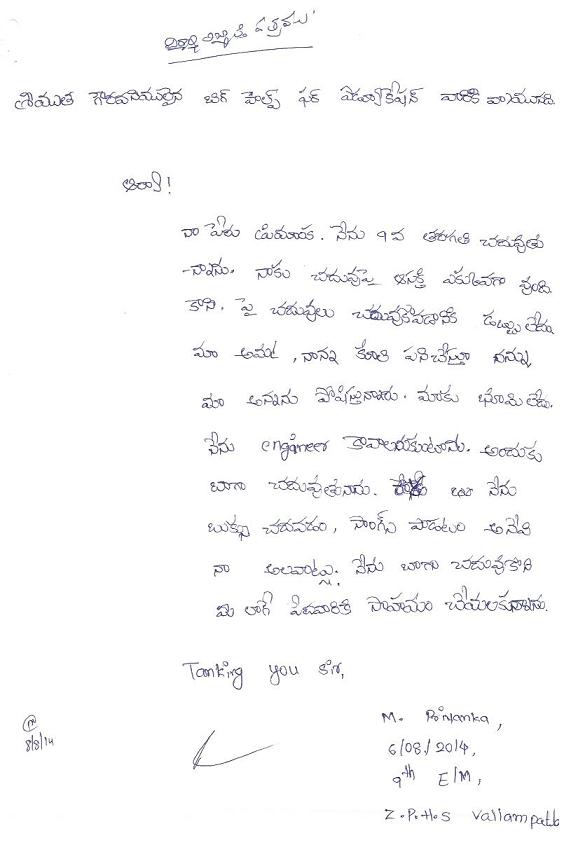 విద్యార్థి అభ్యర్థి పత్రము
శ్రీయుత గౌరవనియులైన బిగ్ హెల్ప్ ఫర్ ఏడ్యుకేషన్ వారికి వ్రాయునది
ఆర్యా!
నా పేరు ప్రియాంక. నేను 9వ తరగతి చదువుతు
-న్నాను. నాకు చదువుపై ఆసక్తి ఎక్కువగా వుంది
కాని. పై చదువులు చదువుకోవడానికి డబ్బు లేదు
మా అమ్మ, నాన్న కూలి పనిచేస్తూ నన్ను
మా అన్నను పోషిస్తున్నారు. మాకు భూమి లేదు.
నేను engineer కావాలనుకుంటాను. అందుకు
బాగా చదువుతునాను. నేను
బుక్స్ చదవడం, సాంగ్స్ పాడటం అనేవి
నా అలవాట్లు. నేను బాగా చదువుకొని
మి లాగే పేదవారికి సాహాయం చేయలకున్నాను.
Tanking you sir,
M. Priyanka,
6/08/2014,
9th E/M,
Z.P.H.S Vallampatla
8/8/14